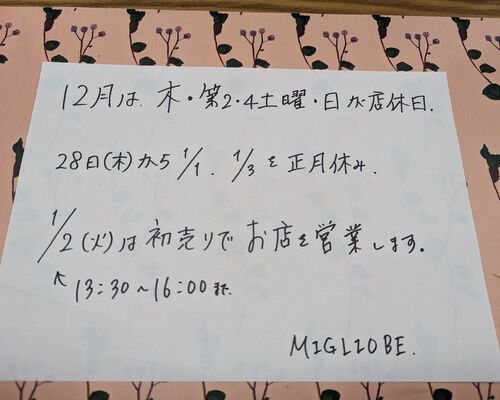 12月は、木・第2・4土曜・日が店休日.
28日(木)から 1/1. 1/3を正月休み.
1/2(火)は初売りでお店を営業します。
↖ 13:30〜16:00まで.
MIGLIOBE.